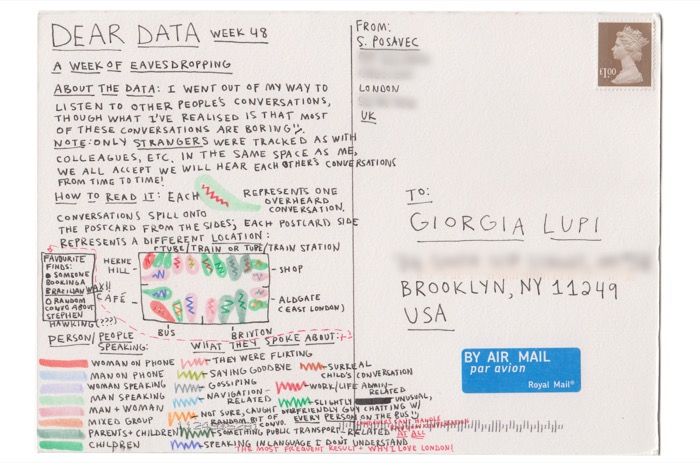 DEAR DATA WEEK 48
A WEEK OF EAVESDROPPING
ABOUT THE DATA: I WENT OUT OF MY WAY TO
LISTEN TO OTHER PEOPLE'S CONVERSATIONS,
THOUGH WHAT I'VE REALISED IS THAT MOST
OF THESE CONVERSATIONS ARE BORING
NOTE: ONLY STRANGERS WERE TRACKED AS WITH
COLLEAGUES, ETC. IN THE SAME SPACE AS ME,
WE ALL ACCEPT WE WILL HEAR EACH OTHER'S CONVERSATIONS
FROM TIME TO TIME!
HOW TO READ IT: EACH REPRESENTS ONE
OVERHEARD
CONVERSATION.
CONVERSATIONS SPILL ONTO
THE POSTCARD FROM THE SIDES; EACH POSTCARD SIDE
REPRESENTS A DIFFERENT LOCATION:
TUBE/TRAIN OR TUBE/TRAIN STATION
HERNE
HILL
SHOP
CAFÉ
ALDGATE
(EAST LONDON)
BUS
BRIXTON
FAVOURITE
FINDS:
SOMEONE
BOOKING A
BRAZILIAN WAX!!
RANDOM
CONVO ABOUT
STEPHEN
HAWKING (???)
PERSON/PEOPLE
SPEAKING:
WOMAN ON PHONE
MAN ON PHONE
WOMAN SPEAKING
MAN SPEAKING
MAN + WOMAN
MIXED GROUP
PARENTS + CHILDREN
CHILDREN
WHAT THEY SPOKE ABOUT:
THEY WERE FLIRTING
SAYING GOODBYE
GOSSIPING
NAVIGATION-
RELATED
NOT SURE, CAUGHT
RANDOM BIT OF
CONVO.
SOMETHING PUBLIC TRANSPORT-RELATED
SPEAKING IN LANGUAGE I DON'T UNDERSTAND
THE MOST FREQUENT RESULT + WHY I LOVE LONDON!
SURREAL
CHILD'S CONVERSATION
WORK/LIFE ADMIN-
RELATED
SLIGHTLY UNUSUAL,
FRIENDLY GUY CHATTING W/
EVERY PERSON ON THE BUS
AT ALL
FROM:
S. POSAVEC
LONDON
UK
£1.00
TO:
GIORGIA LUPI
BROOKLYN, NY 11249
USA
BY AIR MAIL
par avion
Royal Mail®